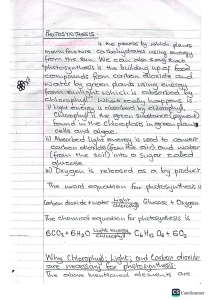 PHOTOSYNTHESIS
is the process by which plants
manufacture carbohydrates using energy
from the sun. We can also say that
photosynthesis is the building up of food
compounds from carbon dioxide and
water by green plants using energy
from sunlight which is absorbed by
chlorophyll. What really happens is
i) light energy is absorbed by chlorophyll.
Chlorophyll is the green substance (pigment)
found in the chloroplasts in green plant
cells and algae.
ii) Absorbed light energy is used to convert
carbon dioxide (from the air) and water
(from the soil) into a sugar called
glucose.
iii) Oxygen is released as a by product
The word equation for photosynthesis is
Carbon dioxide + water Light chlorophyll Glucose + Oxygen
The chemical equation for photosynthesis is
6CO₂ + 6H₂O light energy chlorophyll C₆H₁₂O₆ + 6O₂
Why Chlorophyll, light, and Carbon dioxide
are necessary for photosynthesis.
The above mentioned elements are
CS CamScanner